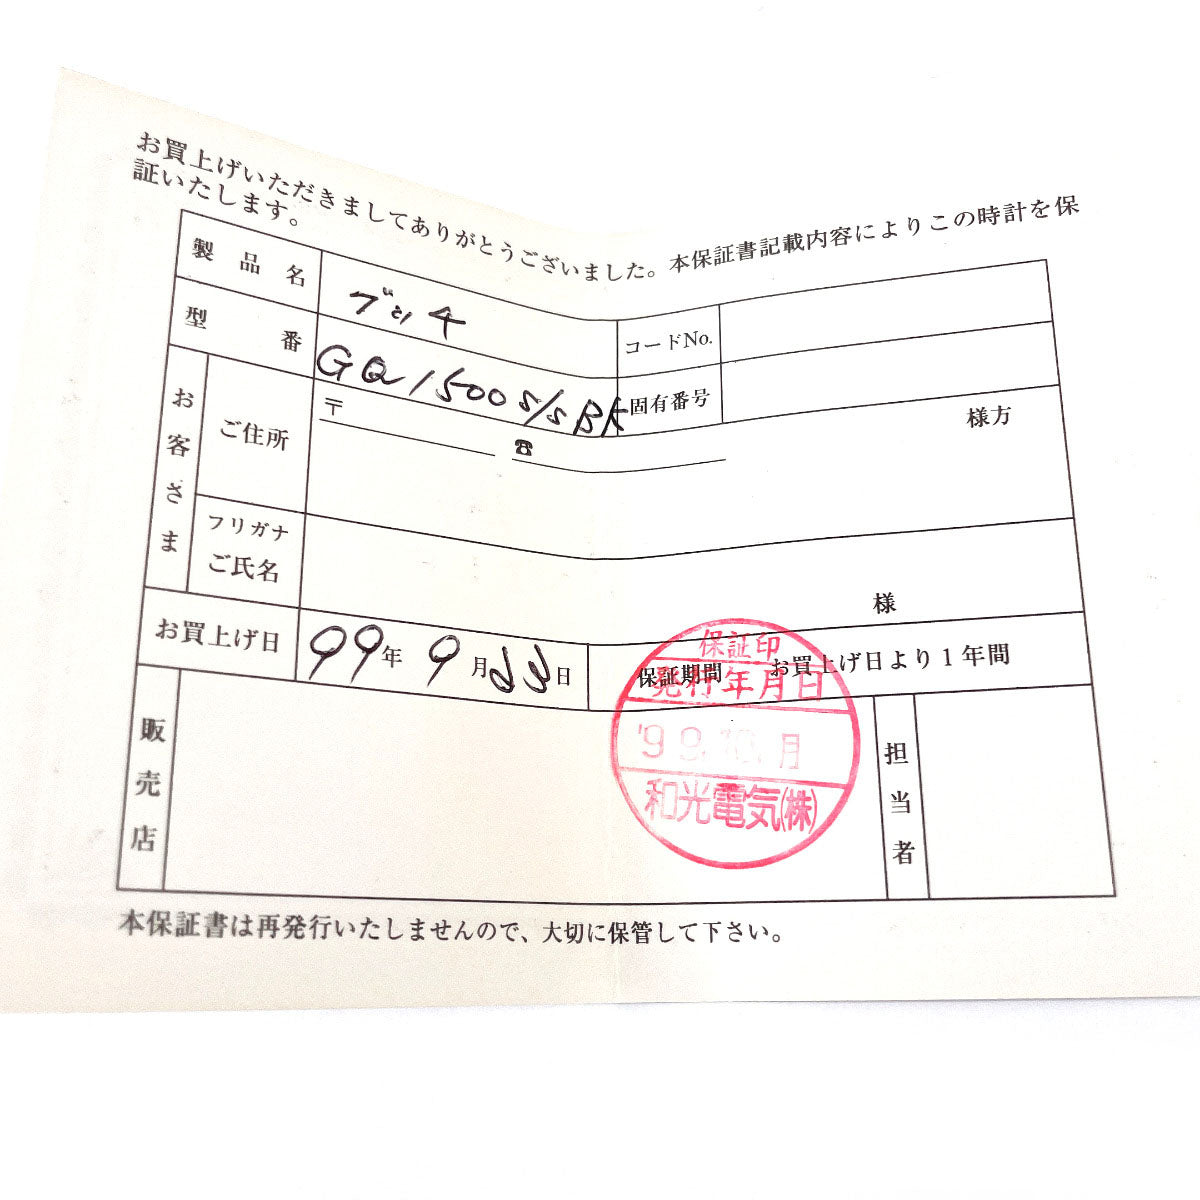 お買上げいただきましてありがとうございました。本保証書記載内容によりこの時計を保
証いたします。
製品名
グッチ
コードNo.
型番
GQ1500 S/S BK
固有番号
お客さま
ご住所
〒
☎
様方
フリガナ
ご氏名
様
お買上げ日
99年 9月23日
保証期間 お買上げ日より1年間
保証印
発行年月日
'99.10.月
和光電気(株)
販売店
担当者
本保証書は再発行いたしませんので、大切に保管して下さい。